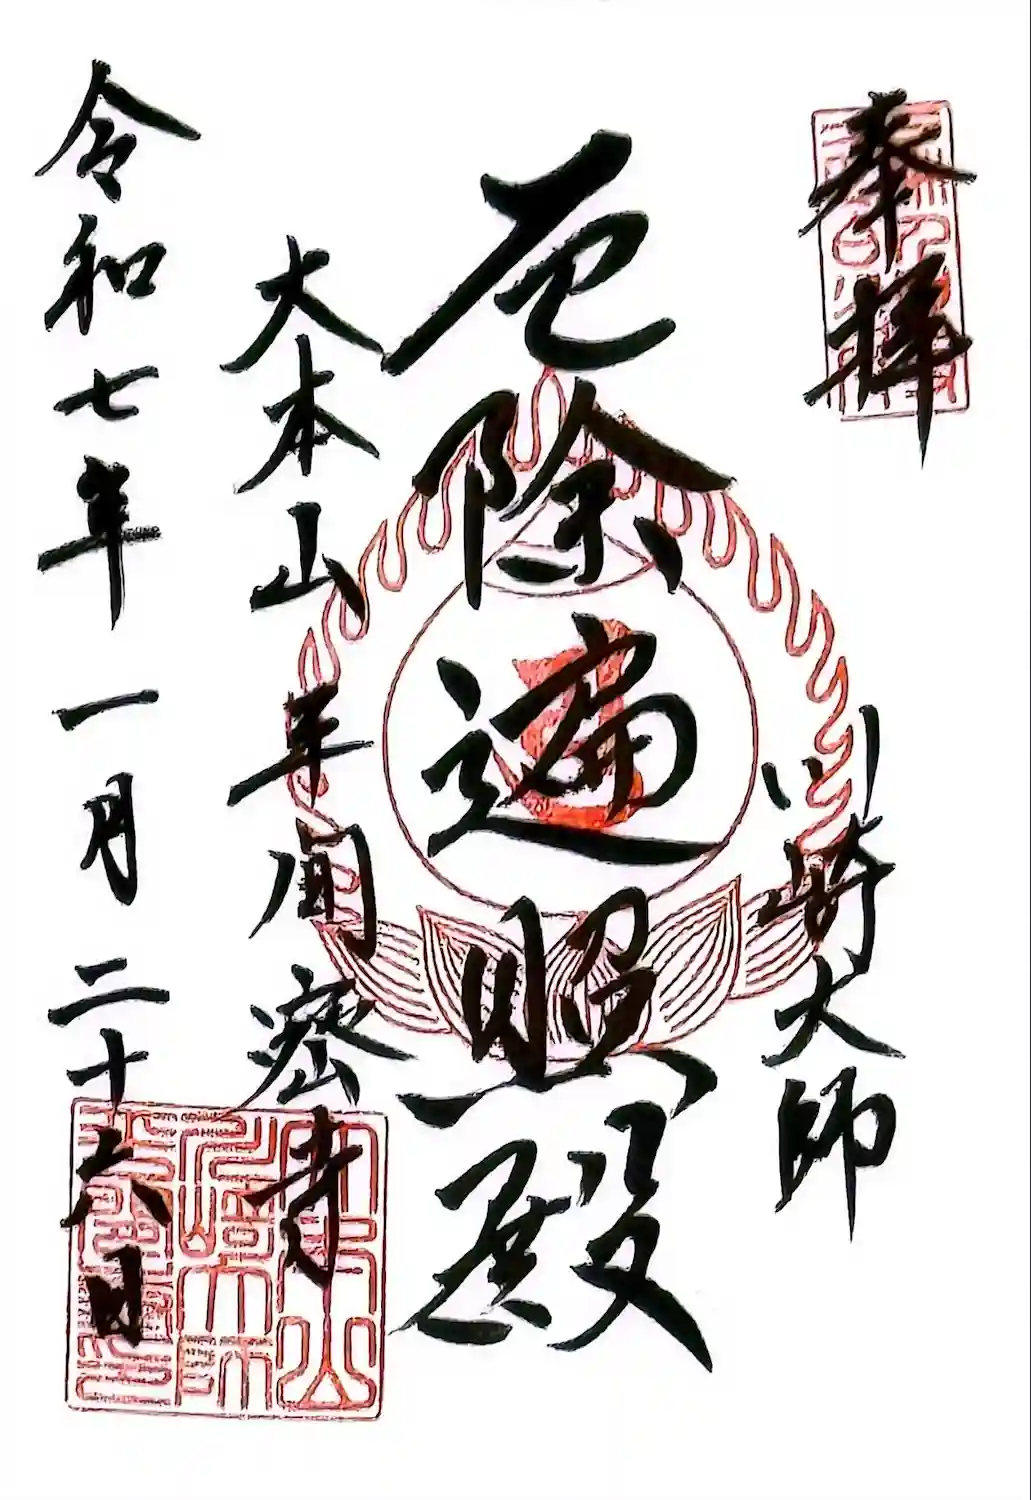 奉拝
川崎大師
厄除遍照殿
大本山 平間密寺
令和七年 一月 二十六日